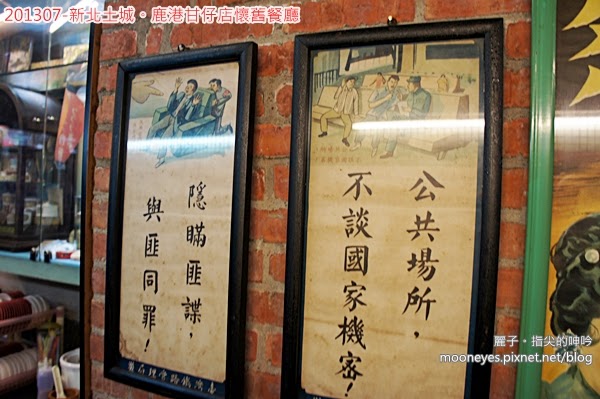 201307-新北土城。鹿港甘仔店懷舊餐廳
隱瞞匪諜，
與匪同罪！
公共場所，
不談國家機密！
麗子。指尖的呻吟
mooneyes.pixnet.net/blog